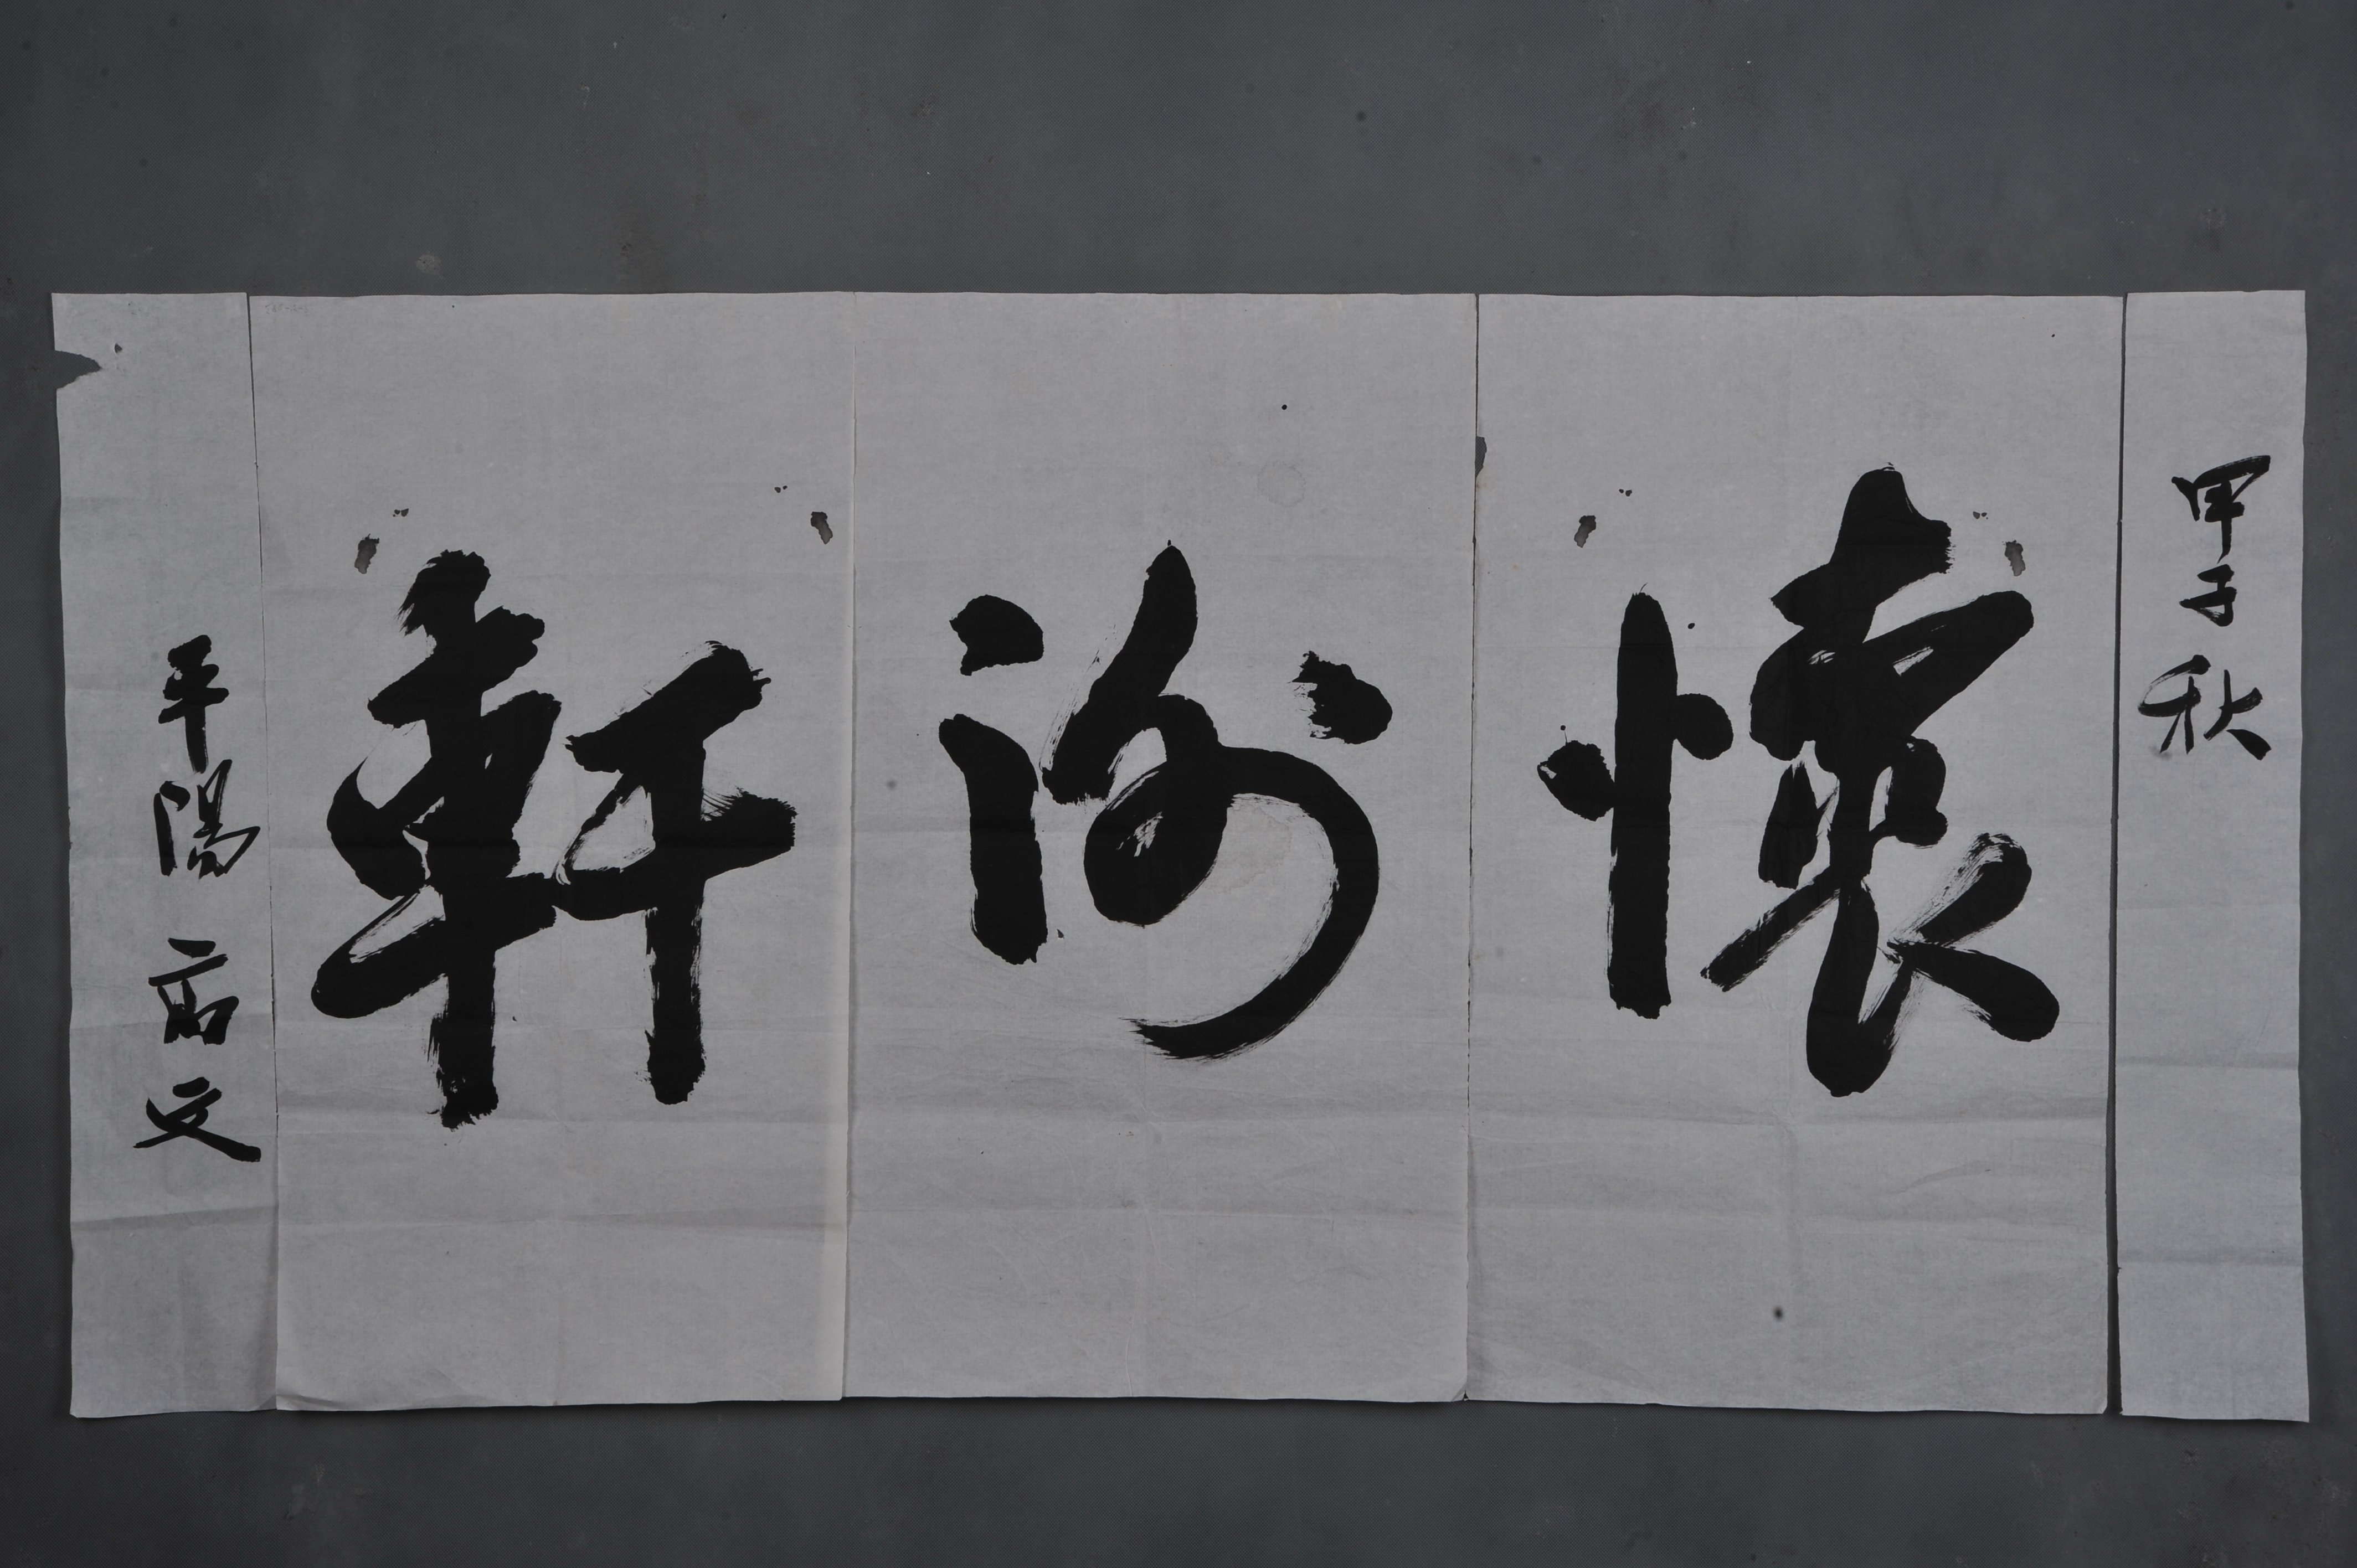 甲子秋
懷沙軒
平陽 高文